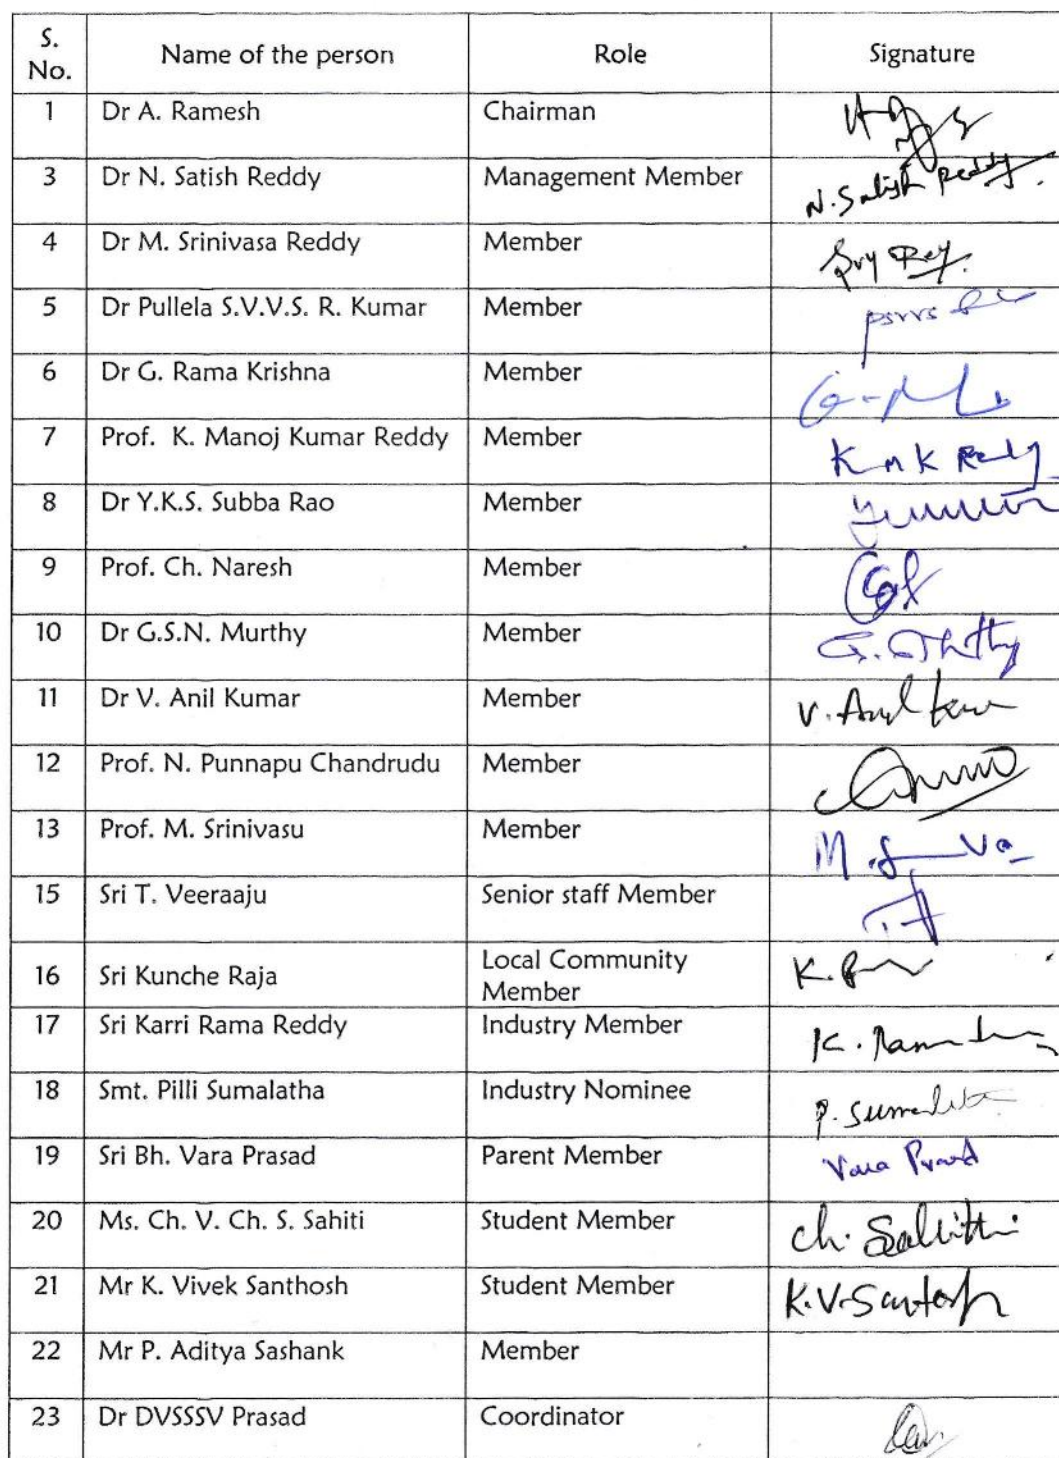 S. No. Name of the person Role Signature
1 Dr A. Ramesh Chairman
3 Dr N. Satish Reddy Management Member N. Satish Reddy
4 Dr M. Srinivasa Reddy Member
5 Dr Pullela S.V.V.S. R. Kumar Member
6 Dr G. Rama Krishna Member
7 Prof. K. Manoj Kumar Reddy Member K M K Reddy
8 Dr Y.K.S. Subba Rao Member
9 Prof. Ch. Naresh Member
10 Dr G.S.N. Murthy Member
11 Dr V. Anil Kumar Member V. Anil Kumar
12 Prof. N. Punnapu Chandrudu Member
13 Prof. M. Srinivasu Member
15 Sri T. Veeraaju Senior staff Member
16 Sri Kunche Raja Local Community
Member
17 Sri Karri Rama Reddy Industry Member
18 Smt. Pilli Sumalatha Industry Nominee P. Sumalatha
19 Sri Bh. Vara Prasad Parent Member Vara Prasad
20 Ms. Ch. V. Ch. S. Sahiti Student Member Ch. Sahithi
21 Mr K. Vivek Santhosh Student Member K.V.Santosh
22 Mr P. Aditya Sashank Member
23 Dr DVSSSV Prasad Coordinator